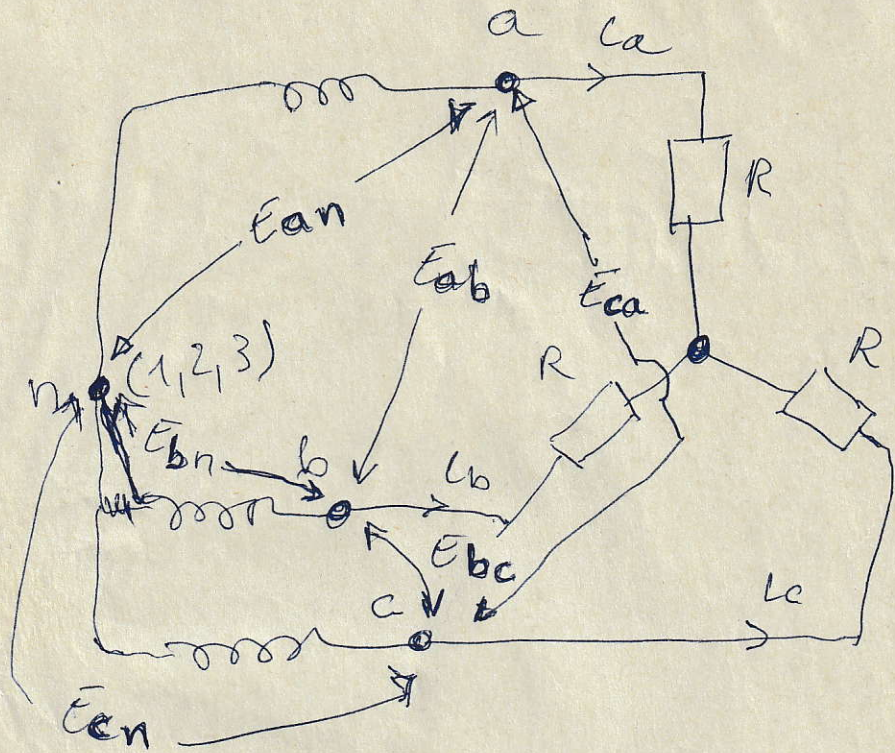 a
ia
R
Ean
Eab
Eca
R
R
n
(1,2,3)
Ebn
b
ib
Ebc
c
ic
Ecn